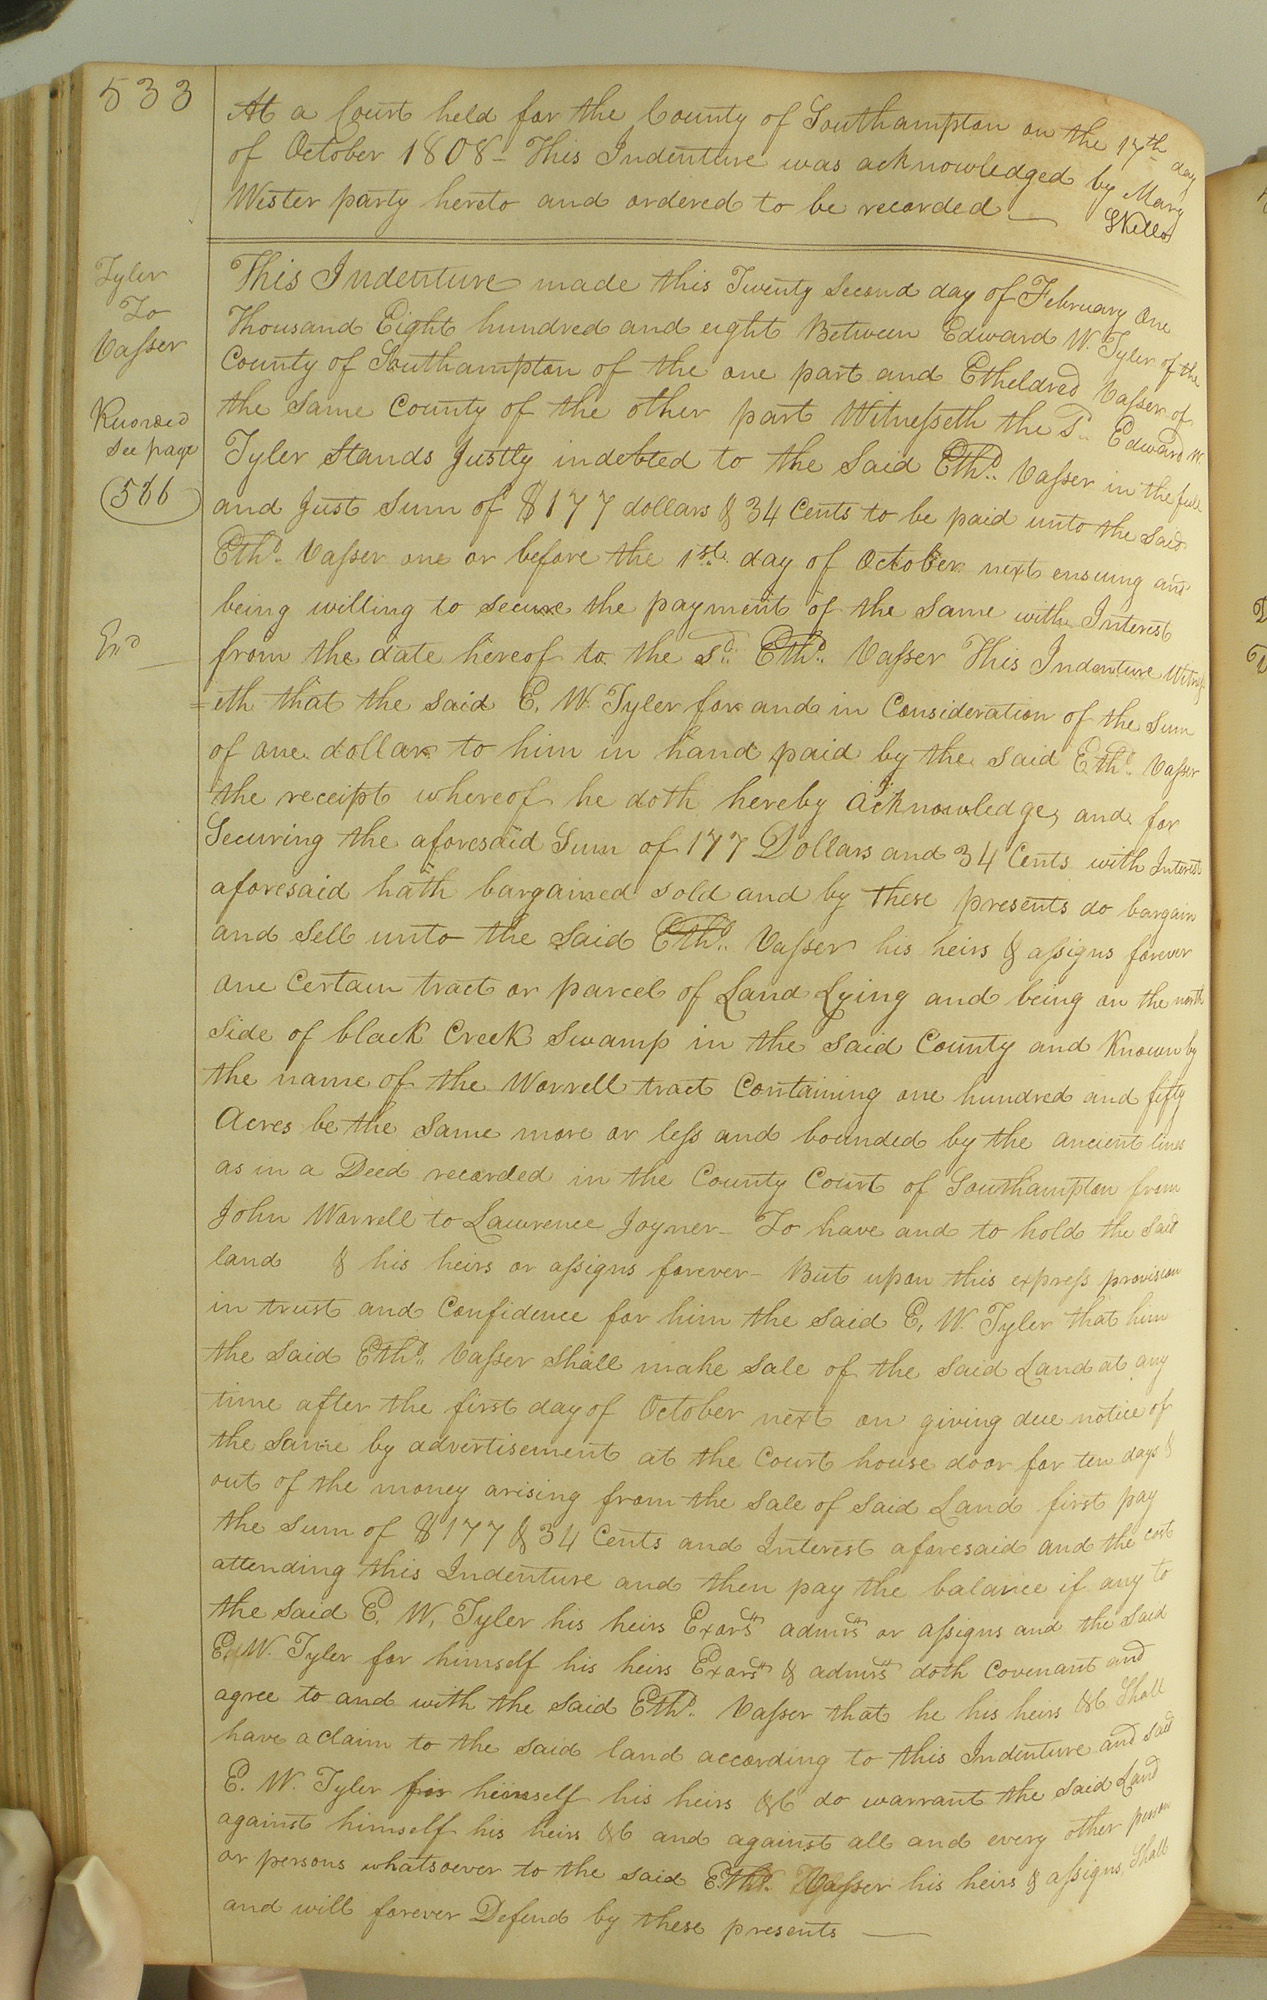 533
At a Court held for the County of Southampton on the 17th day
of October 1808 - This Indenture was acknowledged by Mary
Wester party hereto and ordered to be recorded —
Tyler
To
Vasser
This Indenture made this Twenty Second day of February One
Thousand Eight hundred and eight Between Edward W. Tyler of the
County of Southampton of the one part and Etheldred Vasser of
the Same County of the other part Witnesseth the Sd. Edward W.
Recorded
See page
Tyler Stands Justly indebted to the Said Ethd. Vasser in the full
and Just Sum of $177 dollars & 34 Cents to be paid unto the Said
Ethd. Vasser one or before the 1st. day of October next ensuing and
being willing to Secure the payment of the Same with Interest
End
from the date hereof to the Sd. Ethd. Vasser This Indenture Witness
=eth that the Said E. W. Tyler for and in Consideration of the Sum
of one dollar to him in hand paid by the Said Ethd. Vasser
the receipt whereof he doth hereby acknowledge, and for
Securing the aforesaid Sum of 177 Dollars and 34 Cents with Interest
aforesaid hath bargained Sold and by these presents do bargain
and Sell unto the Said Ethd. Vasser his heirs & assigns forever
one Certain tract or parcel of Land Lying and being on the north
Side of black Creek Swamp in the Said County and Known by
the name of the Worrell tract Containing one hundred and fifty
Acres be the Same more or less and bounded by the ancient lines
as in a Deed recorded in the County Court of Southampton from
John Worrell to Lawrence Joyner - To have and to hold the Said
land & his heirs or assigns forever - But upon this express provision
in trust and Confidence for him the Said E. W. Tyler that him
the Said Ethd. Vasser Shall make Sale of the Said Land at any
time after the first day of October next on giving due notice of
the Same by advertisement at the Court house door for ten days &
out of the money arising from the Sale of Said Land first pay
the Sum of $177 & 34 Cents and Interest aforesaid and the cost
attending this Indenture and then pay the balance if any to
the Said E. W. Tyler his heirs Exors admrs or assigns and the Said
E. W. Tyler for himself his heirs Exors & admrs doth Covenant and
agree to and with the Said Ethd. Vasser that he his heirs &c Shall
have a claim to the Said land according to this Indenture and Said
E. W. Tyler for himself his heirs &c do warrant the Said Land
against himself his heirs &c and against all and every other person
or persons whatsoever to the Said Ethd. Vasser his heirs & assigns, Shall
and will forever Defend by these presents —